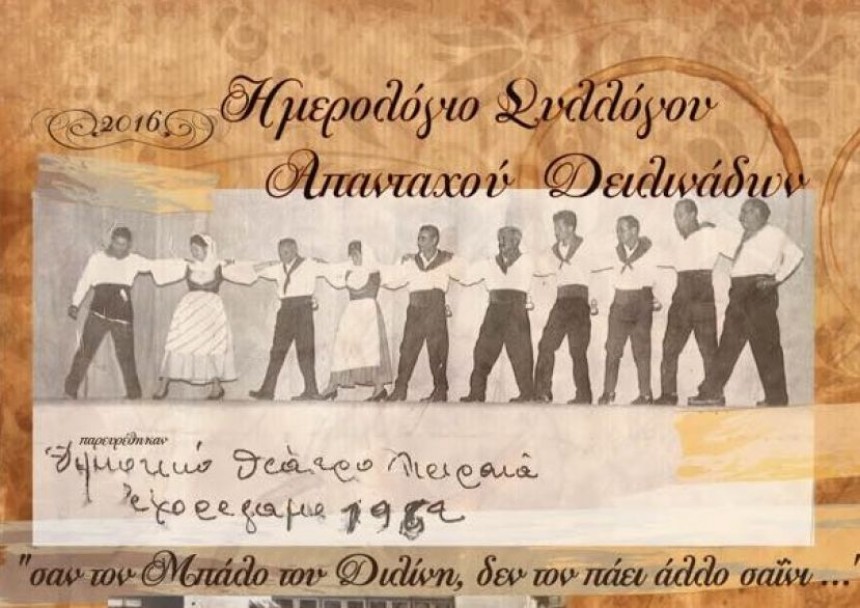 2016
Ημερολόγιο Συλλόγου
Απανταχού Δειλινάδων
παρευρέθηκαν
Δημοτικό Θεάτρο Πειραιά
Εχορεψαμε 19
"σαν τον Μπάλο του Διλίνη, δεν τον πάει άλλο σαΐνι ..."